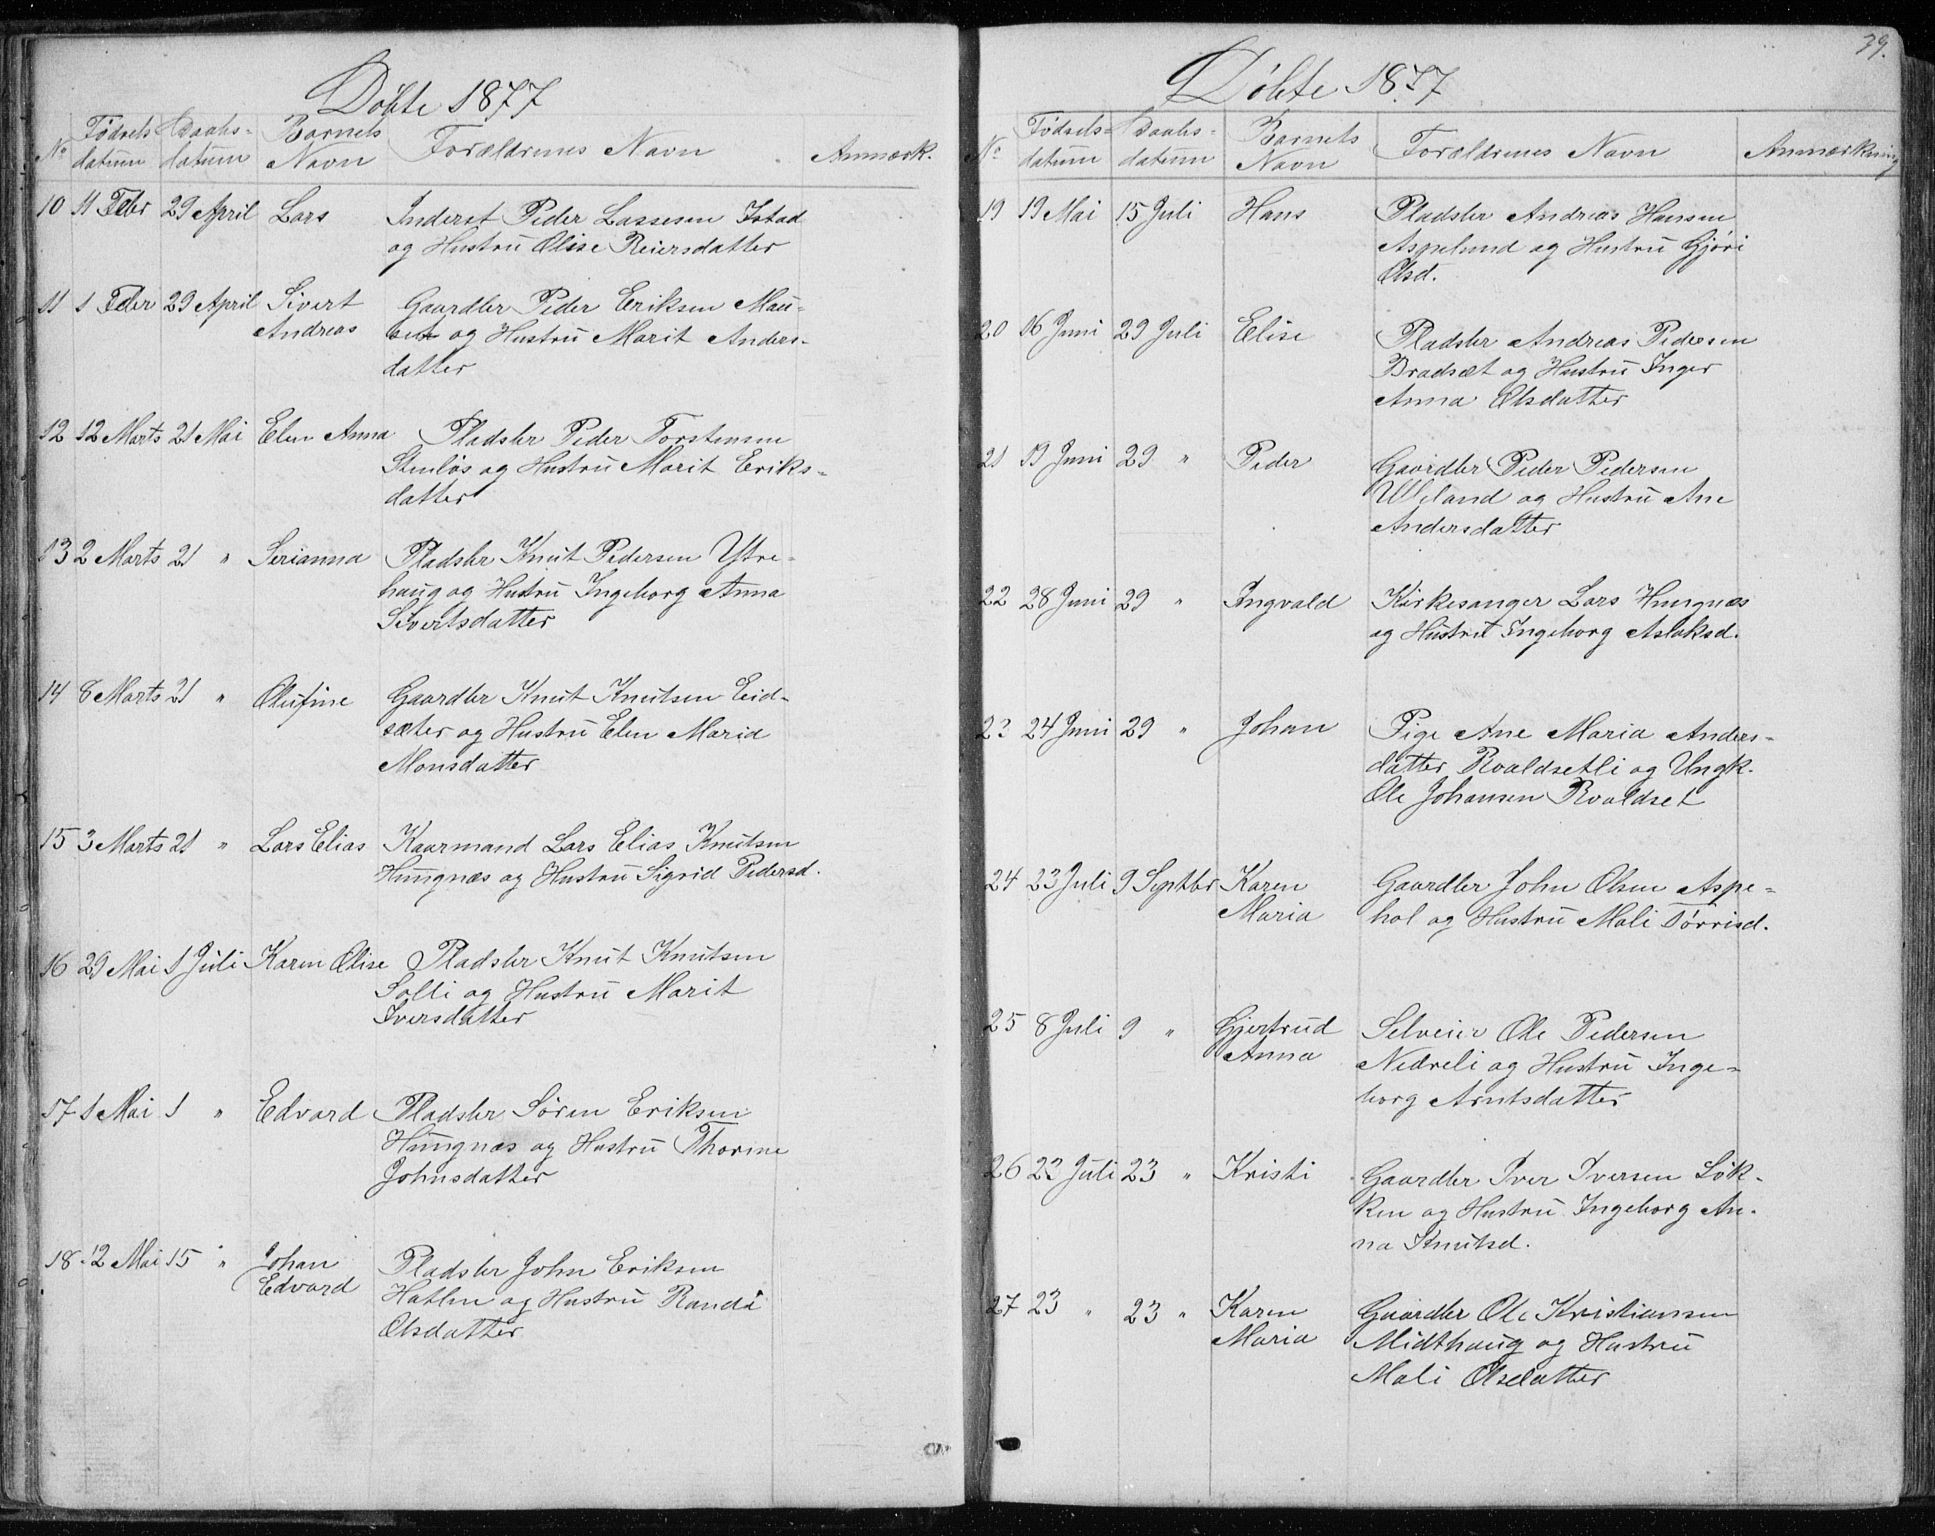 Döbte 1877
No Födsels datum Daabs- datum Barnets Navn Forældrenes Navn Anmærk.
10 11 Febr 29 April Lars Inderst Peder Lassesen Istad
og Hustru Olise Reiersdatter
11 1 Febr 29 April Sivert Gaardbr Peder Eriksen Mau-
Andreas set og Hustru Marit Anders-
datter
12 12 Marts 21 Mai Elen Anna Pladsbr Peder Torstensen
Stenlös og Hustru Marit Eriks-
datter
13 2 Marts 21 " Serianna Pladsbr Knut Pedersen Ytre-
haug og Hustru Ingeborg Anna
Sivertsdatter
14 8 Marts 21 " Olufine Gaardbr Knut Knutsen Eid-
sæter og Hustru Elen Maria
Monsdatter
15 3 Marts 21 " Lars Elias Kaarmand Lars Elias Knutsen
Hungnæs og Hustru Sigrid Pedersd.
16 29 Mai 1 Juli Karen Olise Pladsbr Knut Knutsen
Solli og Hustru Marit
Iversdatter
17 1 Mai 1 " Edvard Pladsbr Sören Eriksen
Hungnæs og Hustru Thorine
Johnsdatter
18 12 Mai 15 " Johan Pladsbr John Eriksen
Edvard Hatlen og Hustru Randi
Olsdatter
39.
Döbte 1877
No Födsels- datum Daabs- datum Barnets Navn Forældrenes Navn Anmærkning
19 19 Mai 15 Juli Hans Pladsbr Andreas Hansen
Aspelund og Hustru Gjöri
Olsd.
20 16 Juni 29 Juli Elise Pladsbr Andreas Pedersen
Bradsæt og Hustru Inger
Anna Olsdatter
21 19 Juni 29 " Peder Gaardbr Peder Pedersen
Ueland og Hustru Ane
Andersdatter
22 28 Juni 29 " Ingvald Kirkesanger Lars Hungnæs
og Hustru Ingeborg Aslaksd.
23 24 Juni 29 " Johan Pige Ane Maria Anders-
datter Roaldsetli og Ungk.
Ole Johansen Roaldset
24 23 Juli 9 Septbr Karen Gaardbr John Olsen Aspe-
Maria hol og Hustru Mali Törrisd.
25 8 Juli 9 " Gjertrud Selveier Ole Pedersen
Anna Nedreli og Hustru Inge-
borg Arntsdatter
26 23 Juli 23 " Kristi Gaardbr Iver Iversen Lök-
ken og Hustru Ingeborg An-
na Knutsd.
27 23 " 23 " Karen Gaardbr Ole Kristiansen
Maria Midthaug og Hustru
Mali Olsdatter